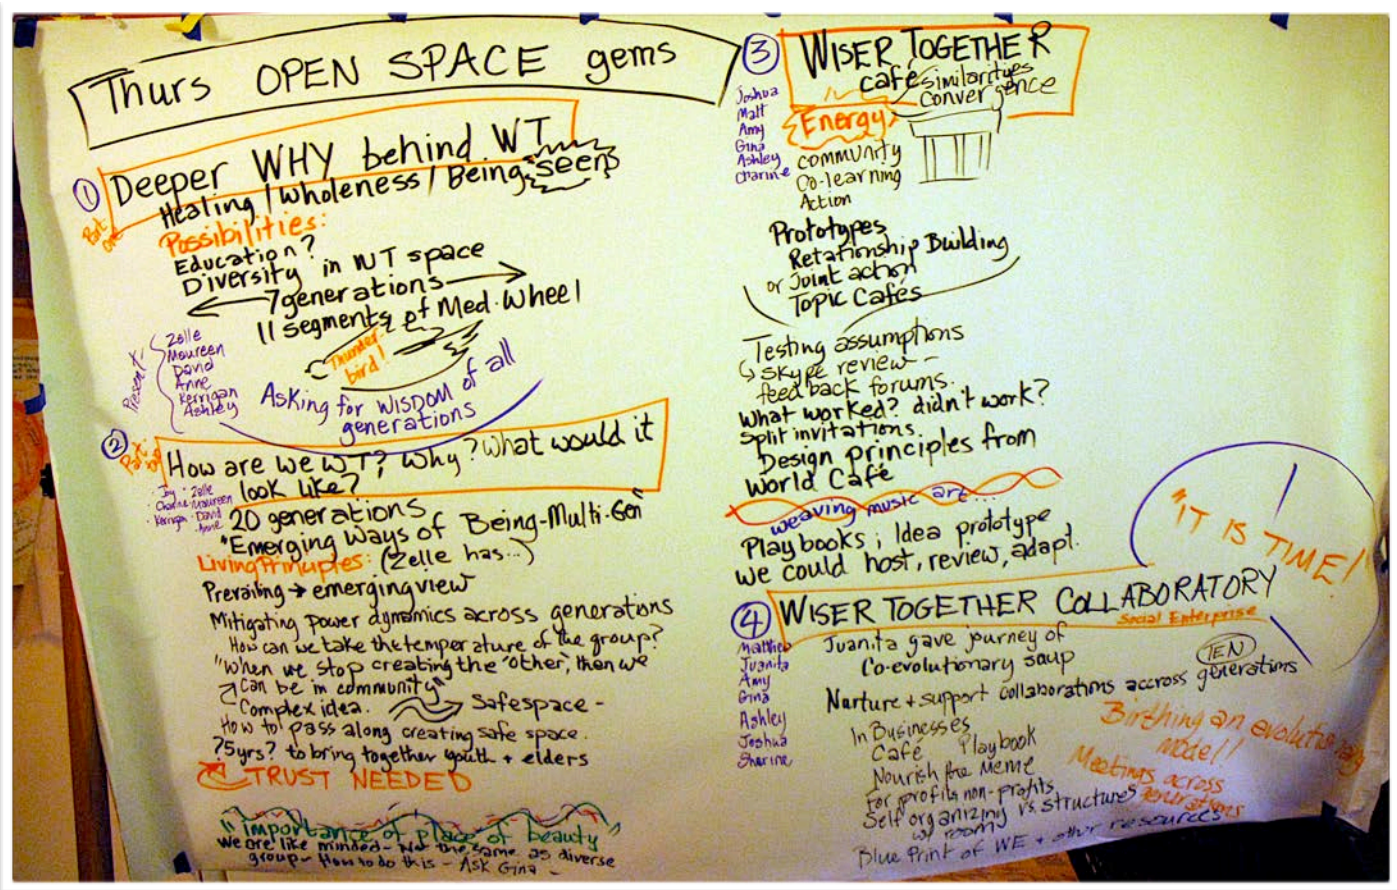 Thurs OPEN SPACE gems
1
Part one
Deeper WHY behind WT
Healing / Wholeness / Being seen
Possibilities:
Education?
Diversity in WT space
7 generations
11 segments of Med. Wheel
Thunder-
bird!
Present
Zelle
Maureen
David
Anne
Kerrigan
Ashley
Asking for WISDOM of all
generations
2
Part two
How are we WT? Why? What would it
look like?
Joy · Zelle
Charine · Maureen
· Kerrigan · David
· Anne
20 generations
"Emerging Ways of Being-Multi-Gen"
Living Principles: (Zelle has...)
Prevailing → emerging view
Mitigating power dynamics across generations
How can we take the temperature of the group?
"When we stop creating the "other", then we
can be in community"
Complex idea.
Safespace -
How to pass along creating safe space.
?5yrs? to bring together youth + elders
TRUST NEEDED
"importance of place of beauty"
We are like minded - Not the same as diverse
group - How to do this - Ask Gina -
3
WISER TOGETHER
café
similarities
convergence
Joshua
Matt
Amy
Gina
Ashley
Charine
Energy
Community
Co-learning
Action
Prototypes
Relationship Building
or Joint action
Topic Cafés
Testing assumptions
↳ Skype review -
feed back forums.
What worked? didn't work?
Split invitations.
Design principles from
World Café
weaving music art...
Playbooks ; Idea prototype
we could host, review, adapt.
"IT IS TIME!
4
WISER TOGETHER COLLABORATORY
Social Enterprise
Matthew
Juanita
Amy
Gina
Ashley
Joshua
Sharine
Juanita gave journey of
Co-evolutionary soup
TEN
Nurture + support collaborations accross generations
In Businesses
Café Playbook
Nourish the Meme
For profits non-profits
Self organizing vs structures
w/ room
Blue Print of WE + other resources
Birthing an evolutionary
model!
Meetings across
generations